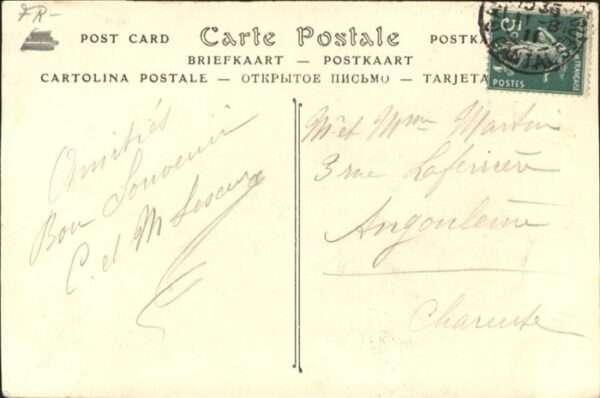 FR-
POST CARD Carte Postale POSTKA
BRIEFKAART — POSTKAART
CARTOLINA POSTALE — ОТКРЫТОЕ ПИСЬМО — TARJETA
Amitiés
Bon Souvenir
C. et M
Mr et Mme Martin
3 rue Laferrière
Angoulême
Charente
POSTES